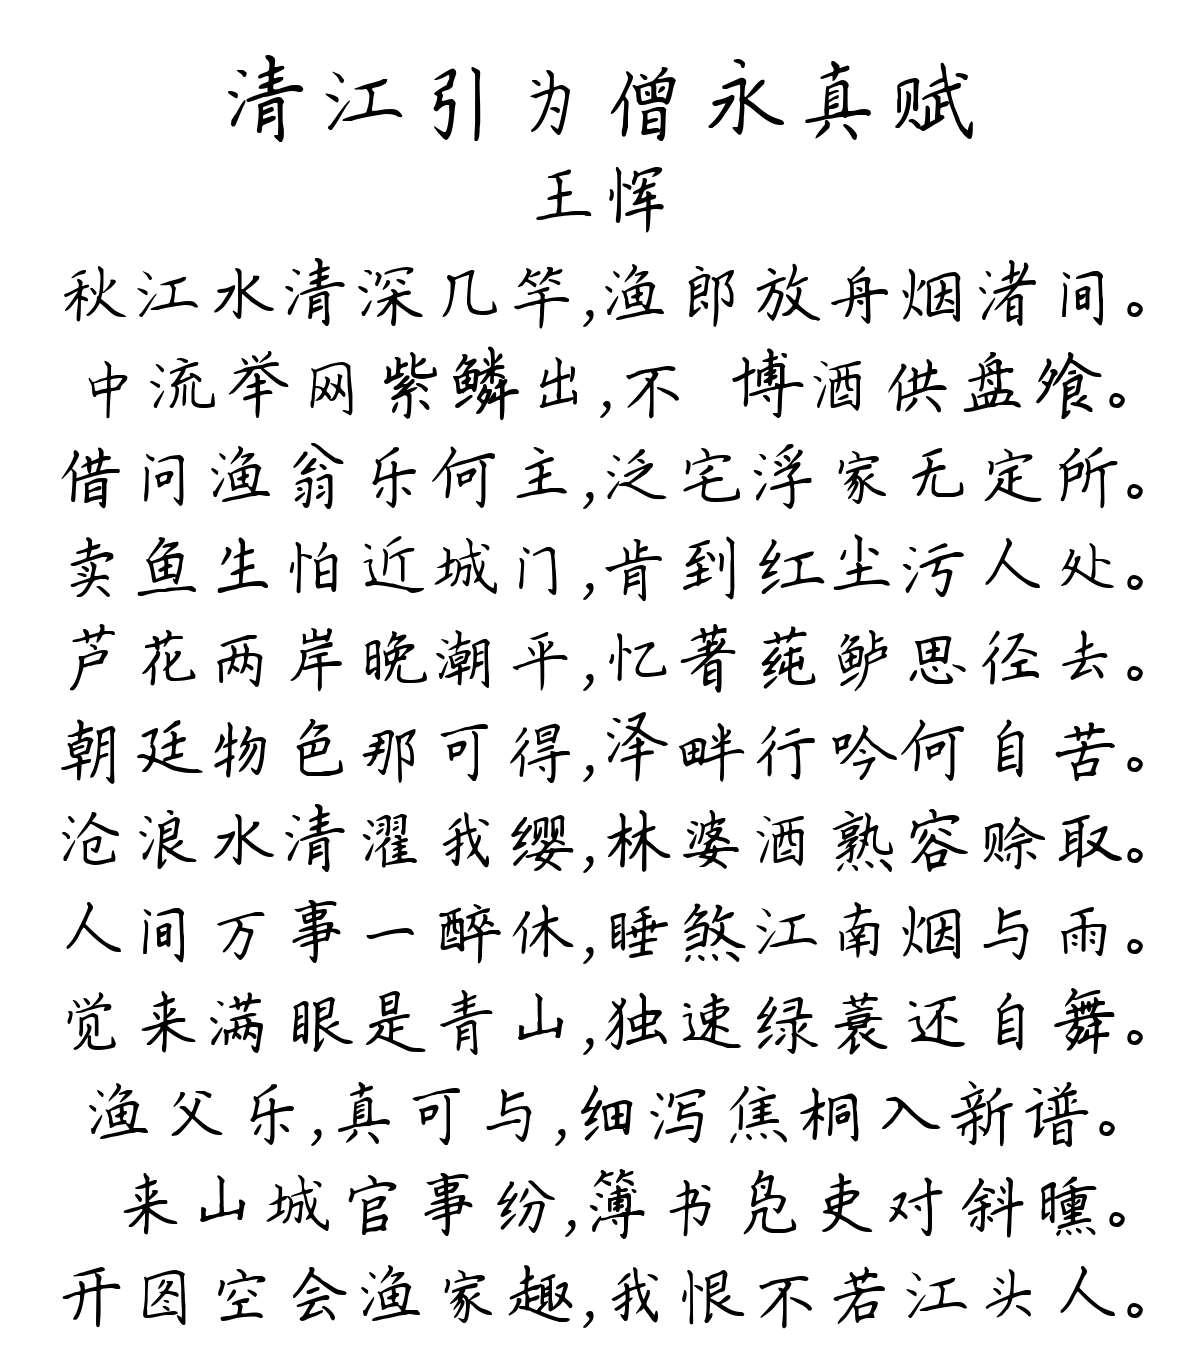 清江引为僧永真赋
王恽
秋江水清深几竿,渔郎放舟烟渚间。
中流举网紫鳞出,不 博酒供盘飧。
借问渔翁乐何主,泛宅浮家无定所。
卖鱼生怕近城门,肯到红尘污人处。
芦花两岸晚潮平,忆著莼鲈思径去。
朝廷物色那可得,泽畔行吟何自苦。
沧浪水清濯我缨,林婆酒熟容赊取。
人间万事一醉休,睡煞江南烟与雨。
觉来满眼是青山,独速绿蓑还自舞。
渔父乐,真可与,细泻焦桐入新谱。
来山城官事纷,簿书凫吏对斜曛。
开图空会渔家趣,我恨不若江头人。